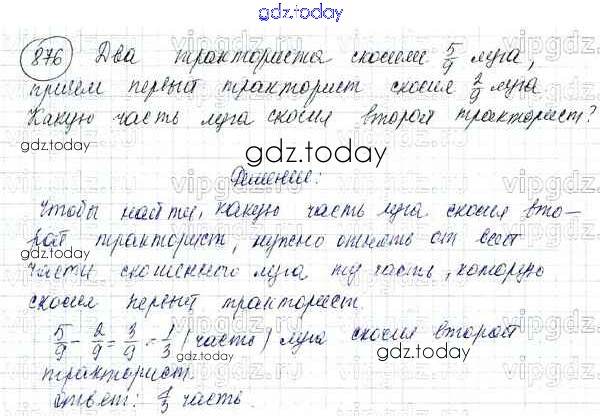 gdz.today
876 Два тракториста скосили 5/9 луга,
причем первый тракторист скосил 2/9 луга
Какую часть луга скосил второй тракторист?
gdz.today
Решение:
Чтобы найти, какую часть луга скосил вто-
рой тракторист, нужно отнять от всей
части скошенного луга ту часть, которую
скосил первый тракторист.
5/9 - 2/9 = 3/9 = 1/3 (часть) луга скосил второй
gdz.today
тракторист.
Ответ: 1/3 часть.
gdz.today